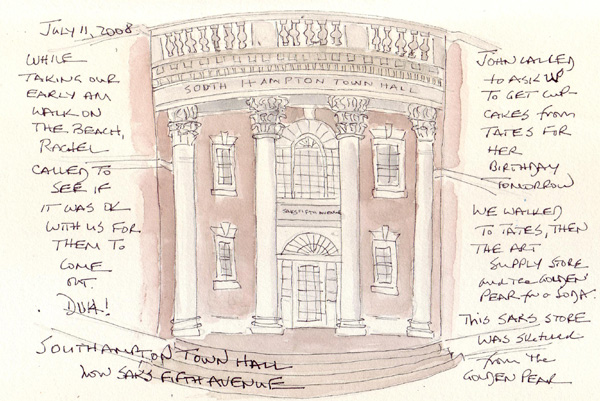 JULY 11, 2008
WHILE
TAKING OUR
EARLY AM
WALK ON
THE BEACH,
RACHEL
CALLED TO
SEE IF
IT WAS OK
WITH US FOR
THEM TO
COME
OUT.
DUH!
SOUTH HAMPTON TOWN HALL
SAKS FIFTH AVENUE
JOHN CALLED
to ASK US
TO GET CUP
CAKES from
TATES FOR
HER
BIRTHDAY
TOMORROW
WE WALKED
TO TATES, THEN
THE ART
SUPPLY STORE
and The GOLDEN
PEAR for a SODA.
THIS SAKS STORE
WAS Sketched
from The
GOLDEN PEAR
SOUTHAMPTON TOWN HALL
NOW SAKS FIFTH AVENUE